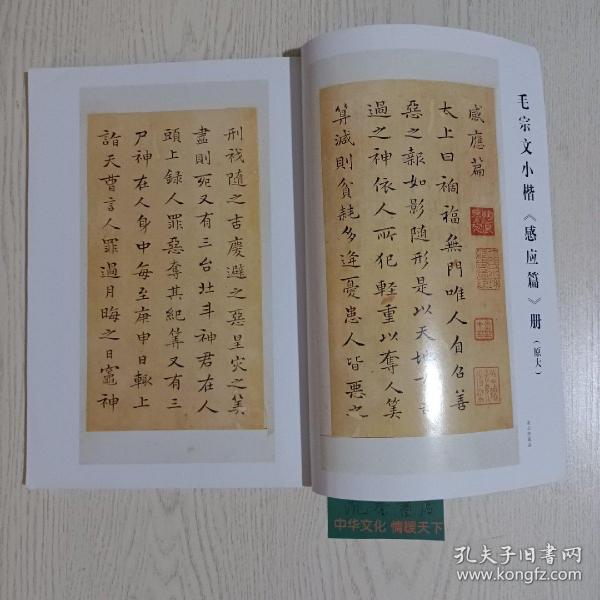 毛宗文小楷《感应篇》册(原大)
感應篇
太上曰禍福無門唯人自召善
惡之報如影隨形是以天地
過之神依人所犯輕重以奪人筭
筭減則貧耗多逢憂患人皆惡之
刑禍隨之吉慶避之惡星災之筭
盡則死又有三台北斗神君在人
頭上錄人罪惡奪其紀筭又有三
尸神在人身中每至庚申日輒上
詣天曹言人罪過月晦之日竈神
中华文化 情暖天下
孔夫子旧书网
www.kongfz.com